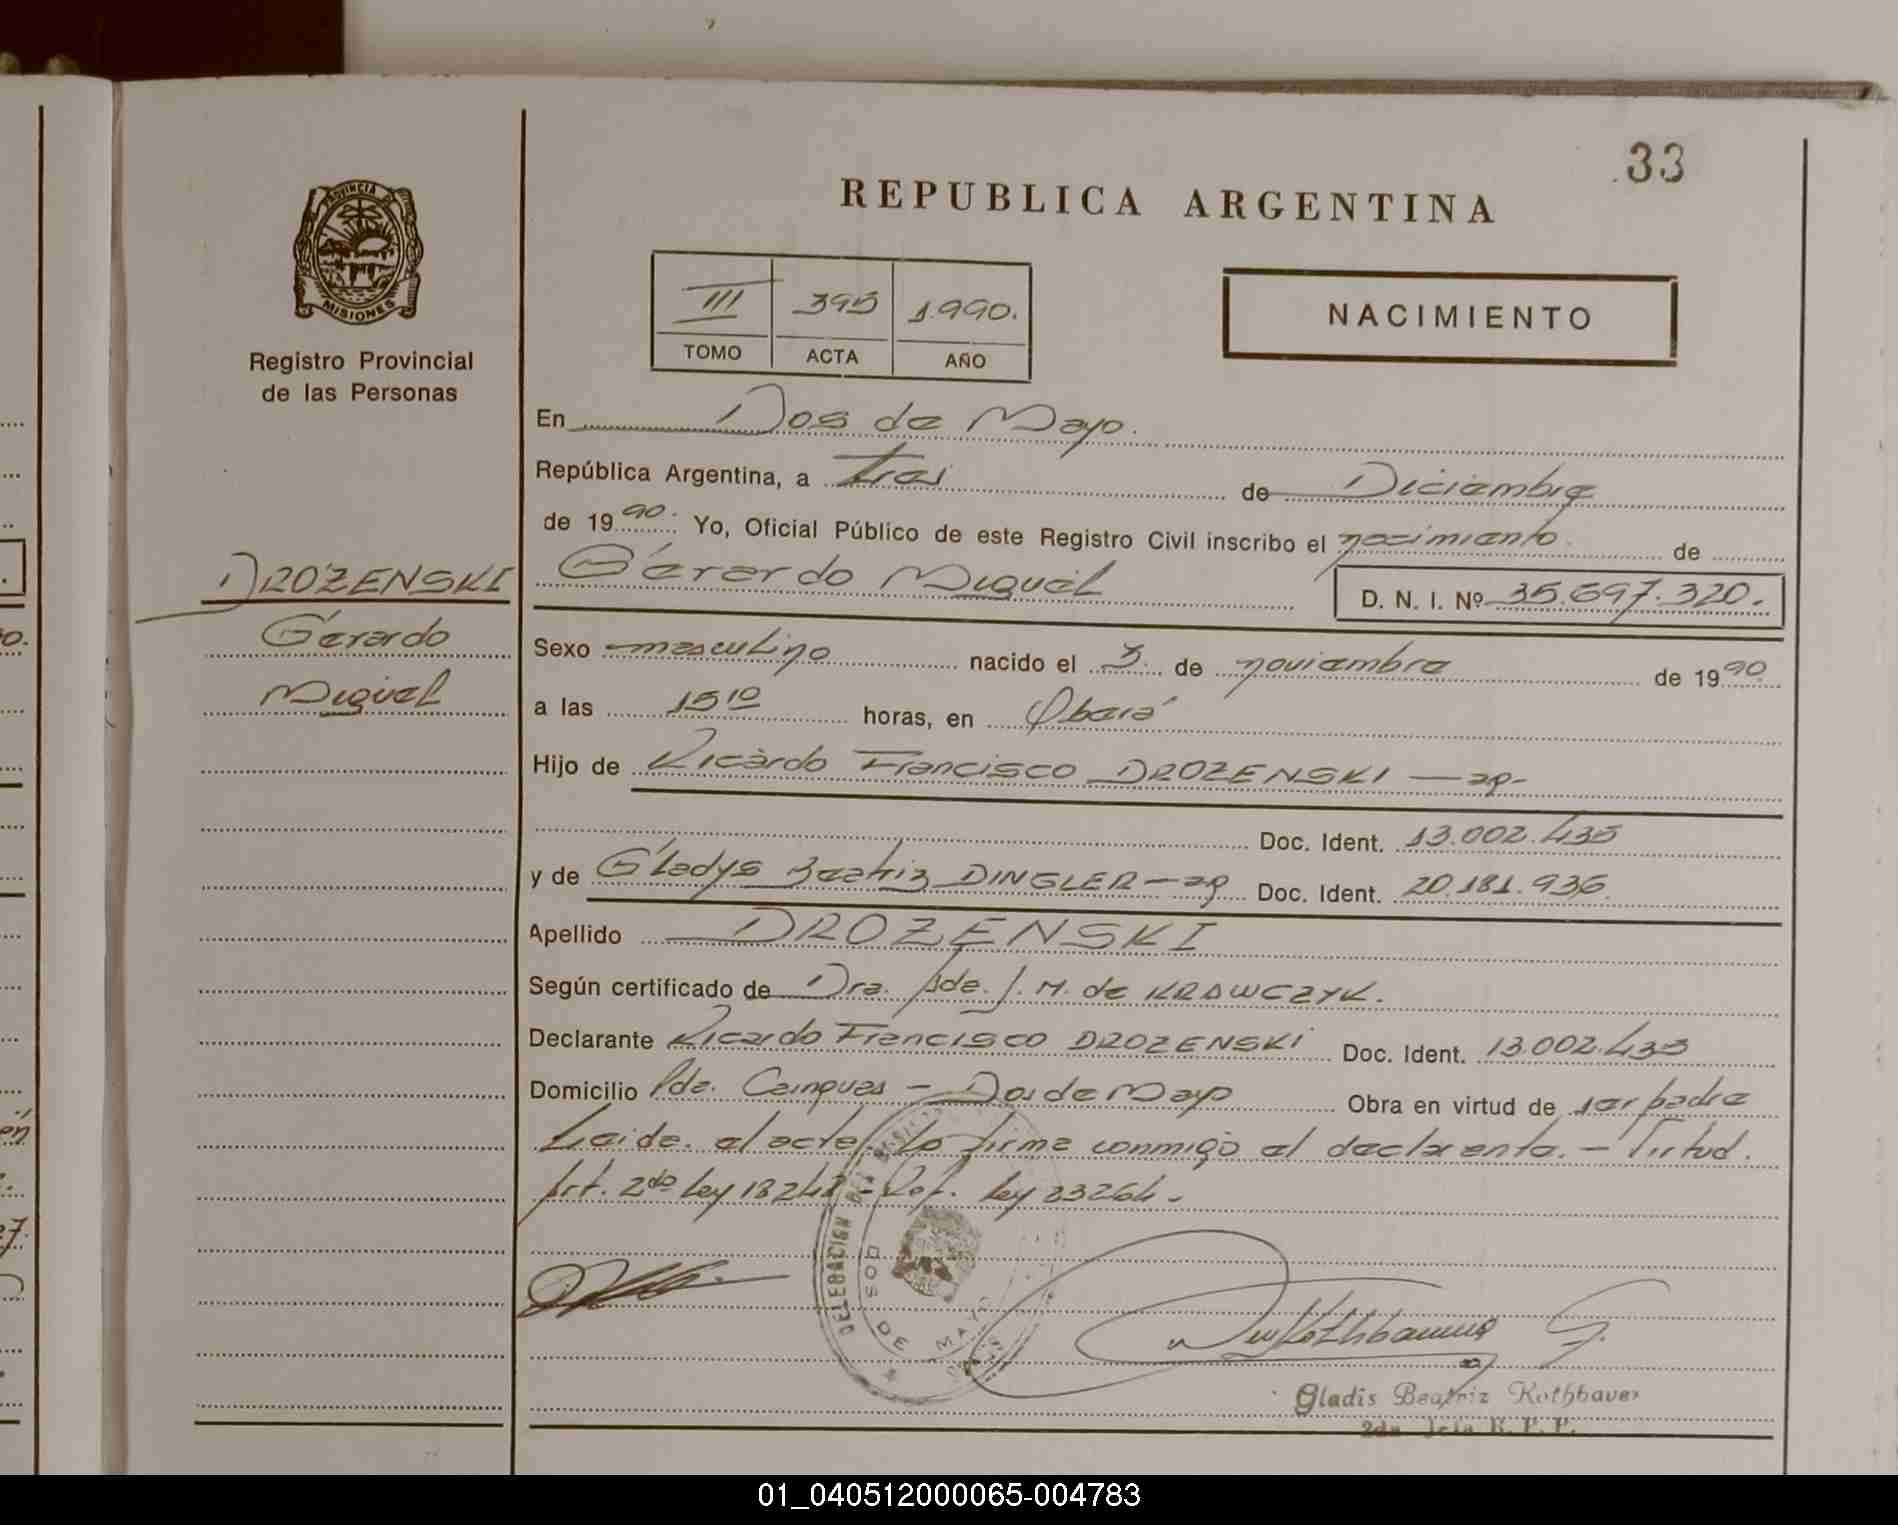 33
REPUBLICA ARGENTINA
PROVINCIA DE
MISIONES
Registro Provincial
de las Personas
III 395 1.990.
TOMO ACTA AÑO
NACIMIENTO
En Dos de Mayo.
República Argentina, a tres de Diciembre
de 1990. Yo, Oficial Público de este Registro Civil inscribo el nacimiento de
DROZENSKI
Gerardo
Miguel
Gerardo Miguel D. N. I. Nº 35.697.320.
Sexo masculino nacido el 3 de noviembre de 1990
a las 15 10 horas, en Oberá
Hijo de Ricardo Francisco DROZENSKI — ar-
Doc. Ident. 13.002.435
y de Gladys Beatriz DINGLER — ar Doc. Ident. 20.181.936
Apellido DROZENSKI
Según certificado de Dra. Ada. J. M. de KRAWCZYK.
Declarante Ricardo Francisco DROZENSKI Doc. Ident. 13.002.435
Domicilio Pde. Cainguas - Dos de Mayo Obra en virtud de ser padre
Leída el acta, la firma conmigo el declarante. - Virtud.
Art. 2do Ley 18248 - Ref. Ley 23264 -
DELEGACION
DOS DE MAYO
Gladis Beatriz Rothbauer
2da Jefa R. P. P.
01_040512000065-004783